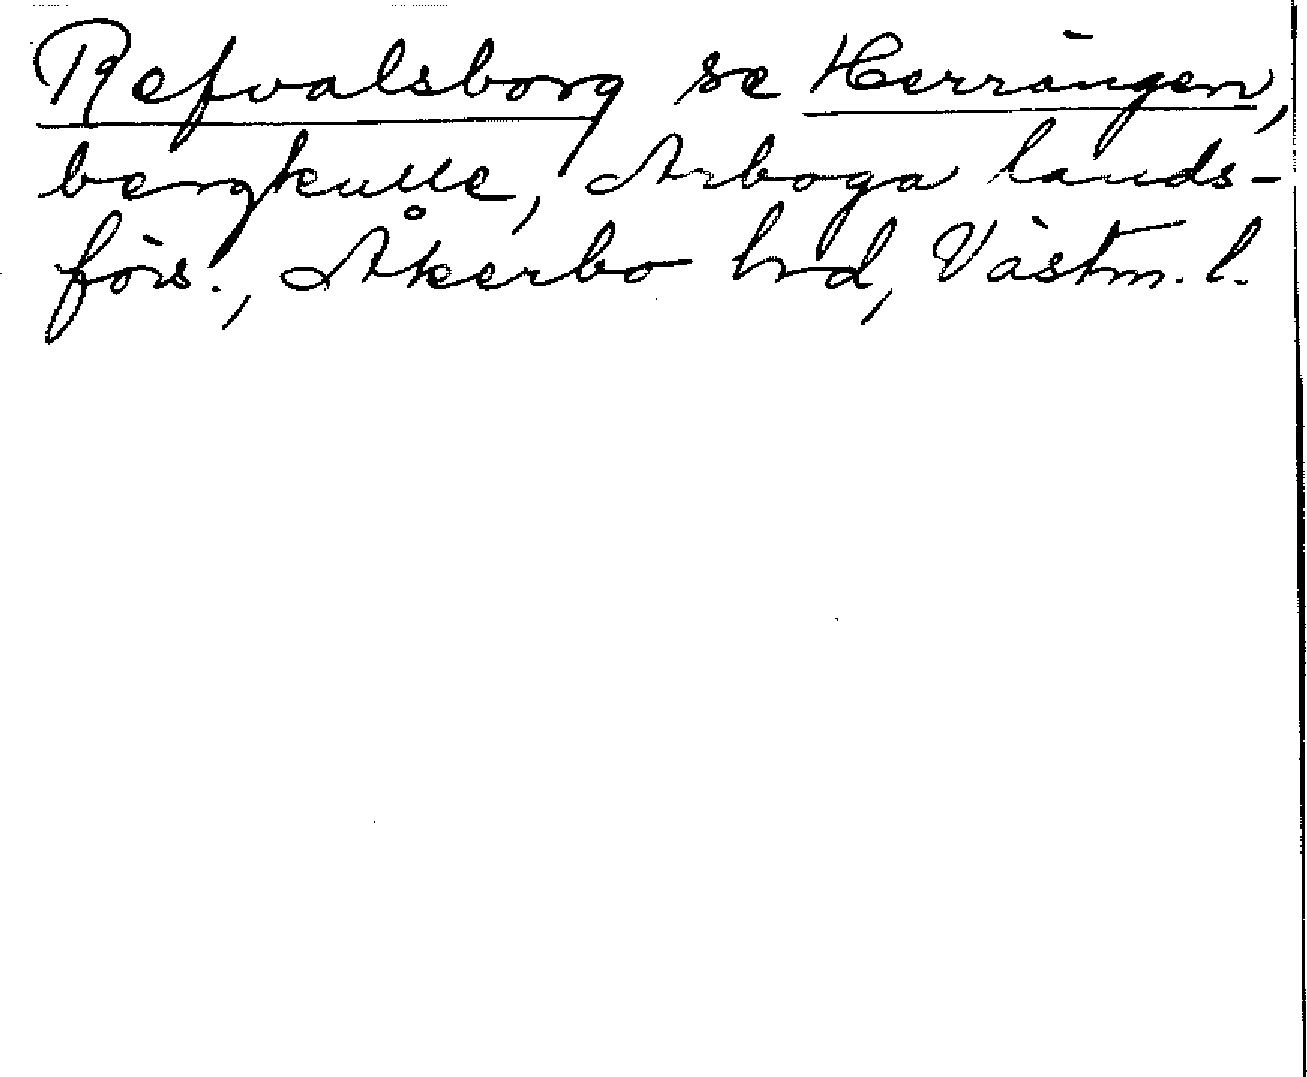 Refvalsborg se Herrängen,
bergkulle, Arboga lands-
förs., Åkerbo hrd, Västm. l.